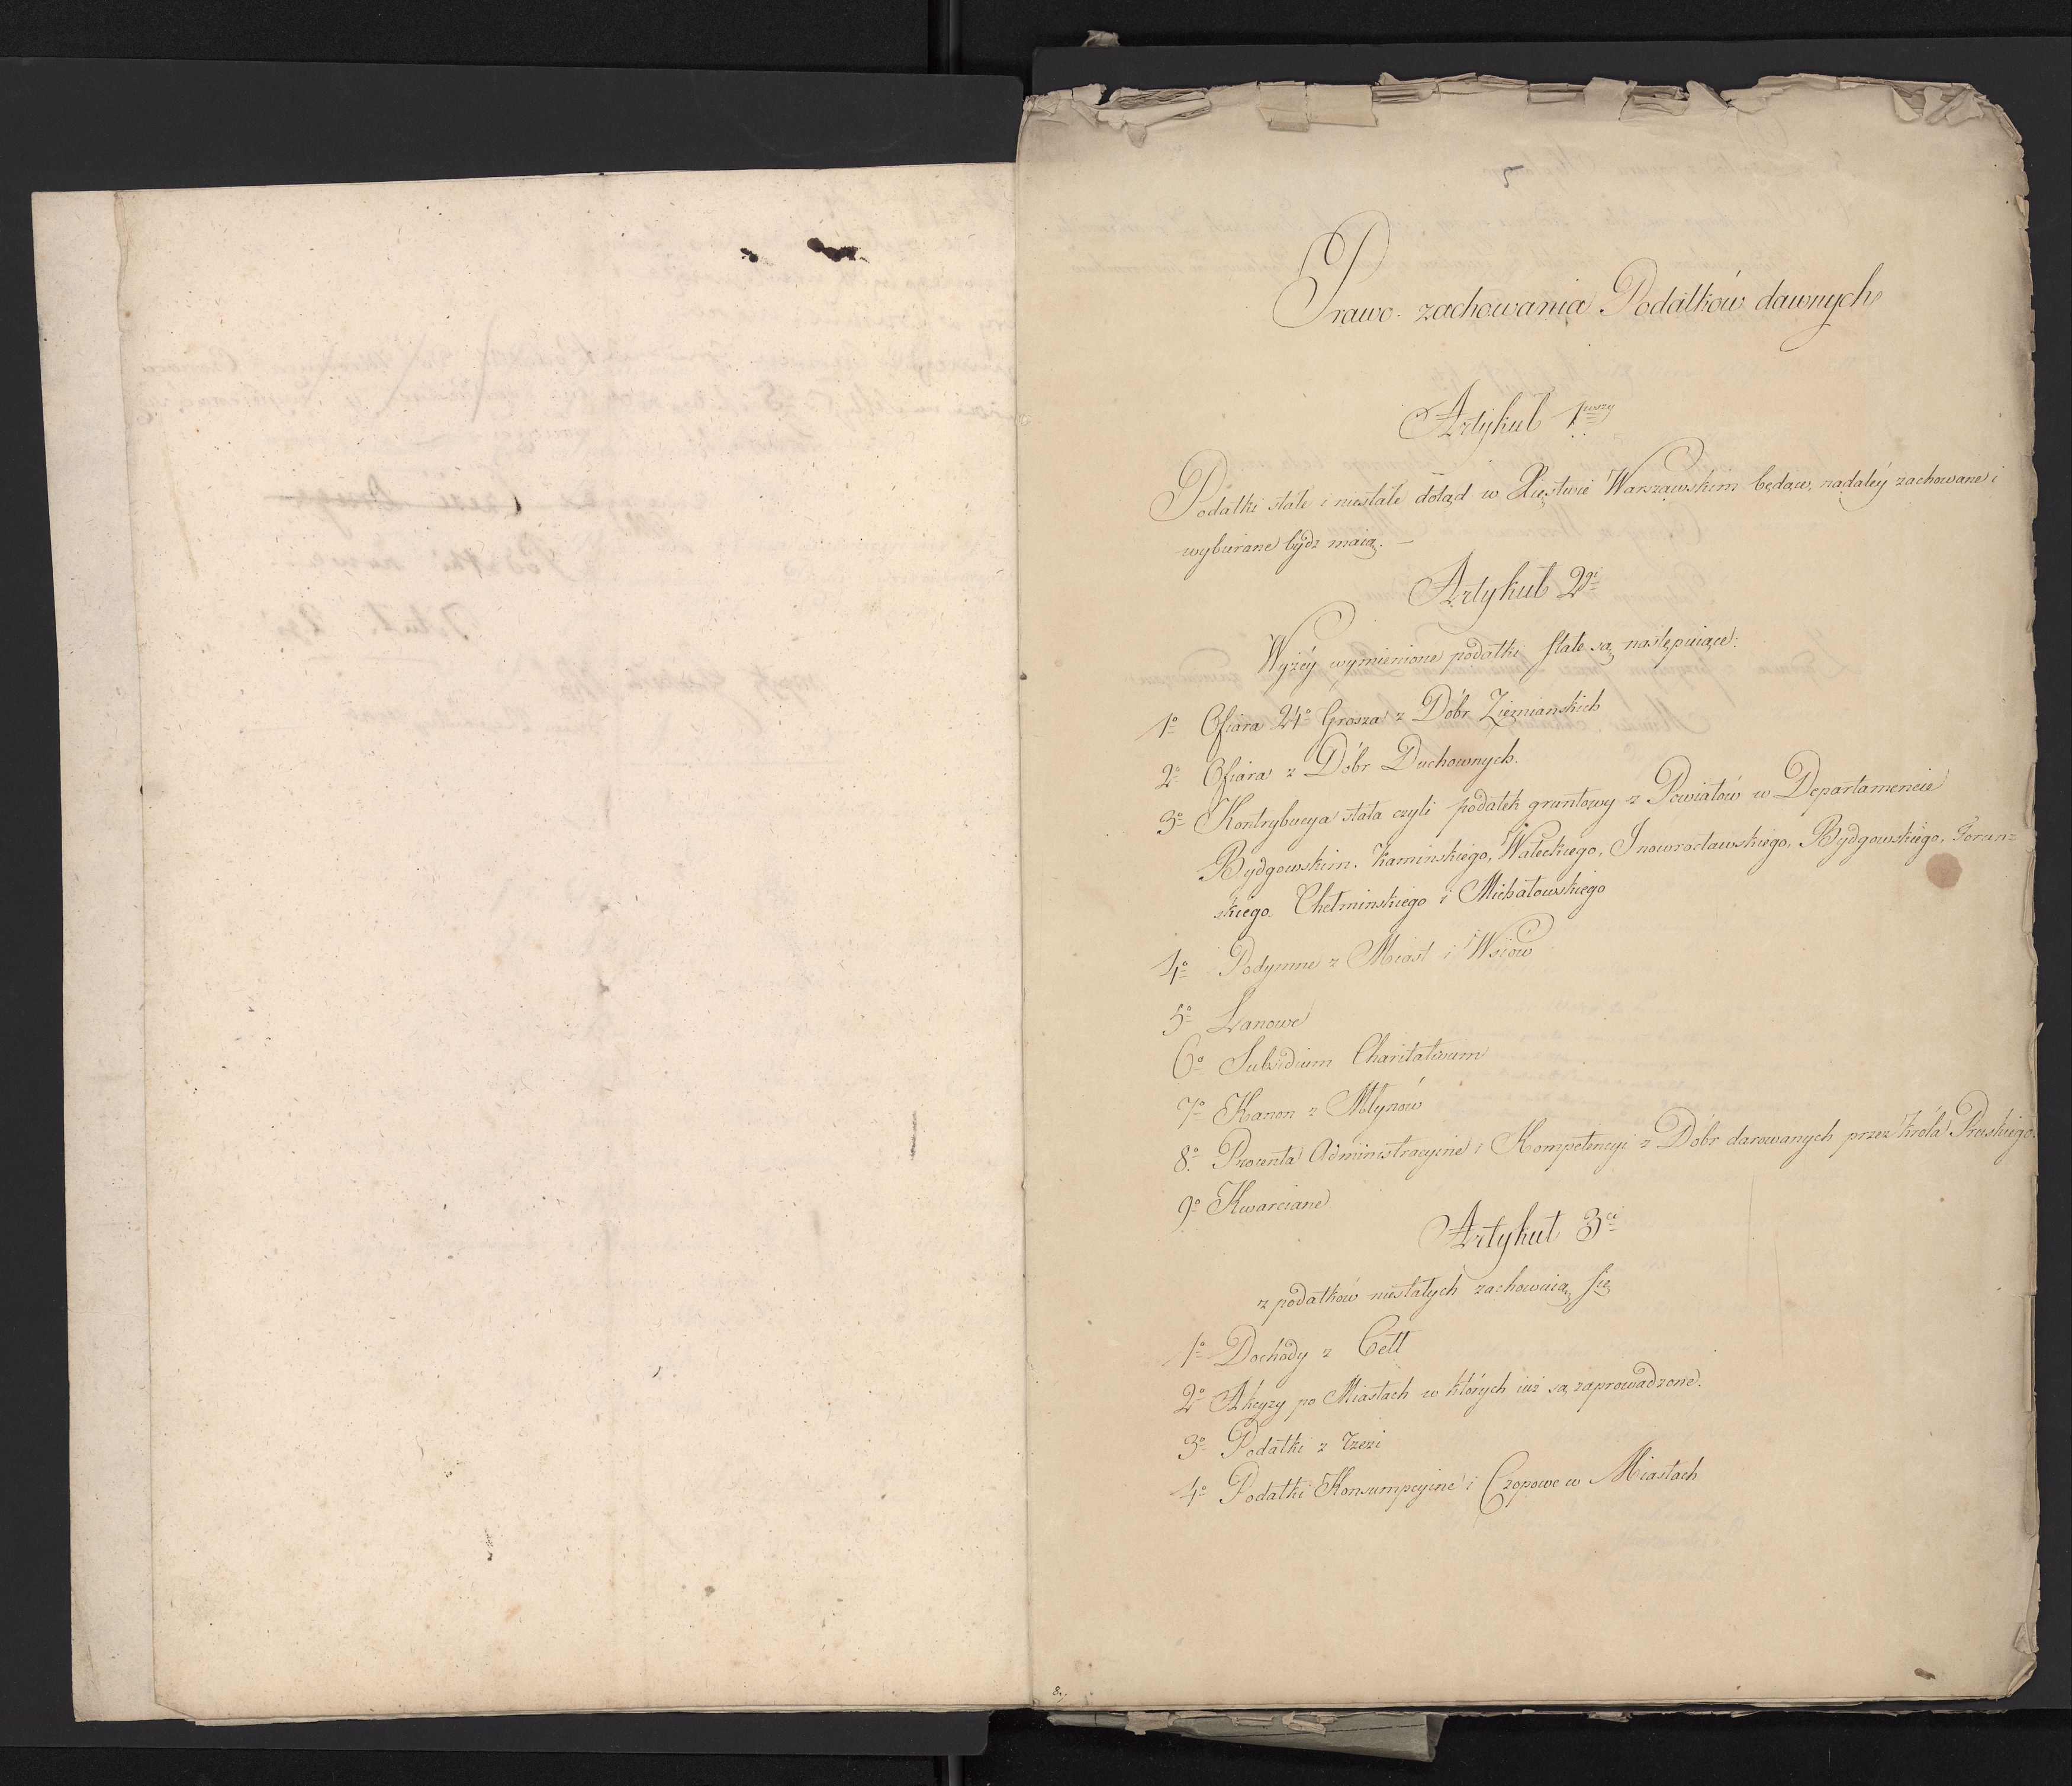 5
Prawo zachowania Podatków dawnych
Artykuł 1wszy
Podatki stałe i niestałe dotąd w Xięstwie Warszawskim będące, nadaléy zachowane i
wybierane bydz maią. —
Artykuł 2gi
Wyżéy wymienione podatki stałe są następuiące:
1o Ofiara 24o Grosza z Dóbr Ziemianskich
2o Ofiara z Dóbr Duchownych.
3o Kontrybucya stała czyli podatek gruntowy z Powiatów w Departamencie
Bydgowskim. Kaminskiego, Wałeckiego, Inowrocławskiego, Bydgowskiego, Torun=
skiego Chełminskiego i Michałowskiego
4o Podymne z Miast i Wsiów
5o Łanowe
6o Subsidium Charitativum
7o Kanon z Młynów
8o Procenta Administracyine i Kompetencyi z Dóbr darowanych przez Króla Pruskiego.
9o Kwarciane
Artykuł 3ci
z podatków niestałych zachowuią się
1o Dochody z Cełł
2o Akcyzy po Miastach w których iuż są zaprowadzone.
3o Podatki z rzezi
4o Podatki Konsumpcyine i Czopowe w Miastach
8.